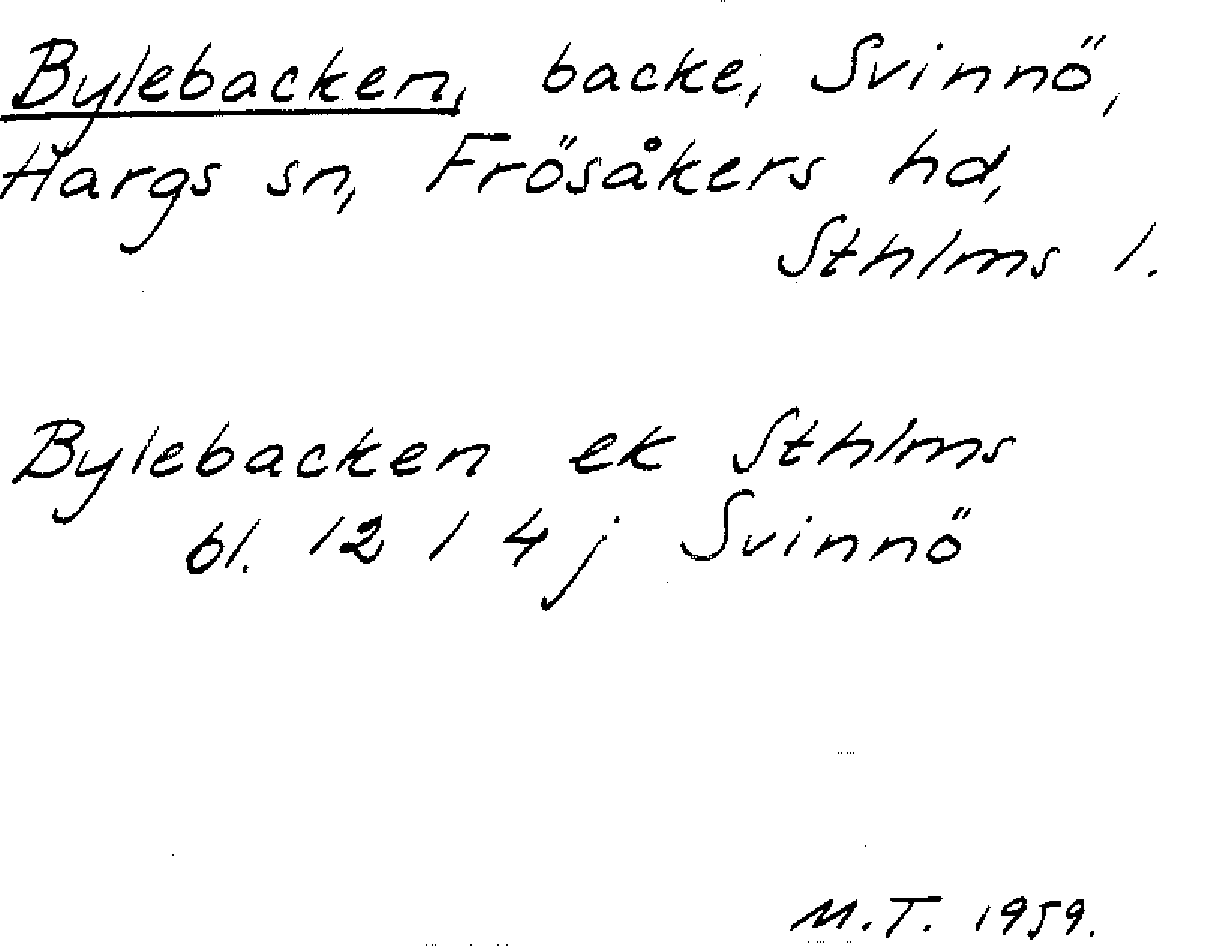 Bylebacken, backe, Svinnö,
Hargs sn, Frösåkers hd,
Sthlms l.
Bylebacken ek Sthlms
bl. 12 l 4 j Svinnö
M.T. 1959.